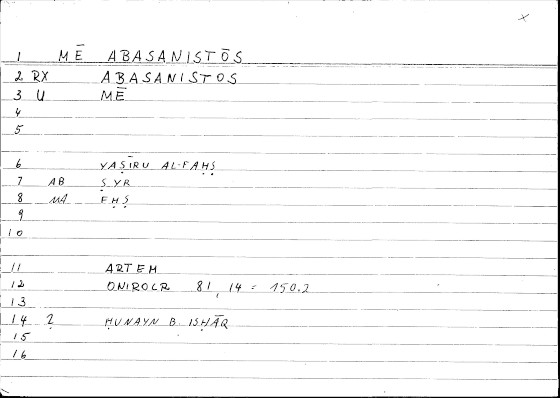 x
1 MĒ ABASANISTŌS
2 RX ABASANISTOS
3 U MĒ
4
5
6 YAṢĪRU AL-FAḤṢ
7 AB ṢYR
8 MA FḤṢ
9
10
11 ARTEM
12 ONIROCR 81, 14 = 150.2
13
14 2 ḤUNAYN B. ISḤĀQ
15
16